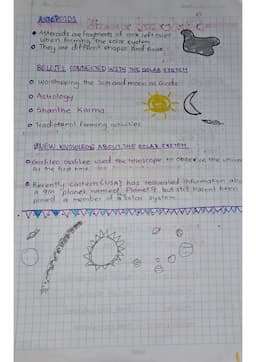 ASTEROIDS
Asteroids are fragments of rock left over
when forming the solar system
They are different shapes and sizes
BELIEFS CONNECTED WITH THE SOLAR SYSTEM
Worshipping the Sun and moon as Gods
Astrology
Shanthi Karma
Traditional farming activities
NEW KNOWLEDGE ABOUT THE SOLAR SYSTEM
Galileo Galilei used the telescope to observe the
as the first time
Recently (USA) has revealed information
a planet named Planet 9 but still havent been
a member of solar system